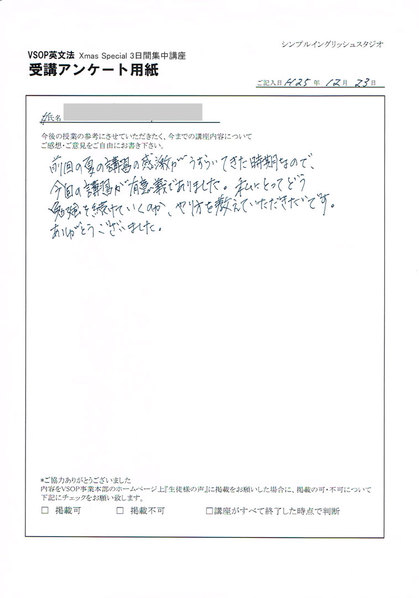 シンプルイングリッシュスタジオ
VSOP英文法 Xmas Special 3日間集中講座
受講アンケート用紙
ご記入日 H25 年 12 月 23 日
氏名
今後の授業の参考にさせていただきたく、今までの講座内容について
ご感想・ご意見をご自由にお書き下さい。
前回の夏の講習の感激がうすらいできた時期なので、
今回の講習が有意義でありました。私にとってどう
勉強を続けていくのか、やり方を教えていただきたいです。
ありがとうございました。
*ご協力ありがとうございました
内容をVSOP事業本部のホームページ上『生徒様の声』に掲載をお願いした場合に、掲載の可・不可について
下記にチェックをお願い致します。
□ 掲載可 □ 掲載不可 □講座がすべて終了した時点で判断